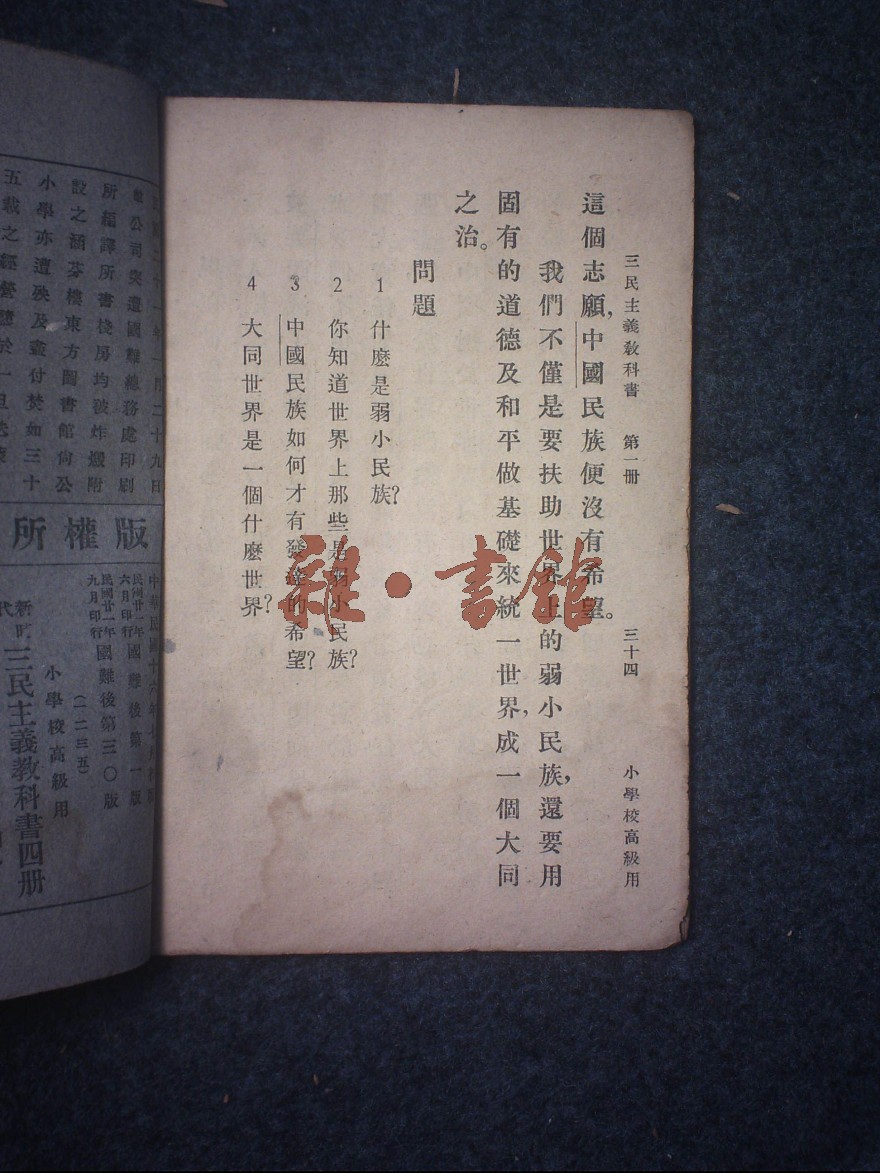 三民主義教科書 第一册 三十四 小學校高級用
這個志願，中國民族便沒有希望。
我們不僅是要扶助世界上的弱小民族，還要用
固有的道德及和平做基礎來統一世界，成一個大同
之治。
問題
1 什麼是弱小民族？
2 你知道世界上那些是弱小民族？
3 中國民族如何才有發達的希望？
4 大同世界是一個什麼世界？
雜·書館
年一月二十九日
公司突遭國難總務處印刷
所編譯所書棧房均被炸燬附
設之涵芬樓東方圖書館尚公
小學亦遭殃及盡付焚如三十
五載之經營隳於一旦
版權所
中華民國十六年
民國廿一年六月印行國難後第一版
民國廿一年九月印行國難後第三〇版
(一二三五)
小學校高級用
新時代三民主義教科書四册